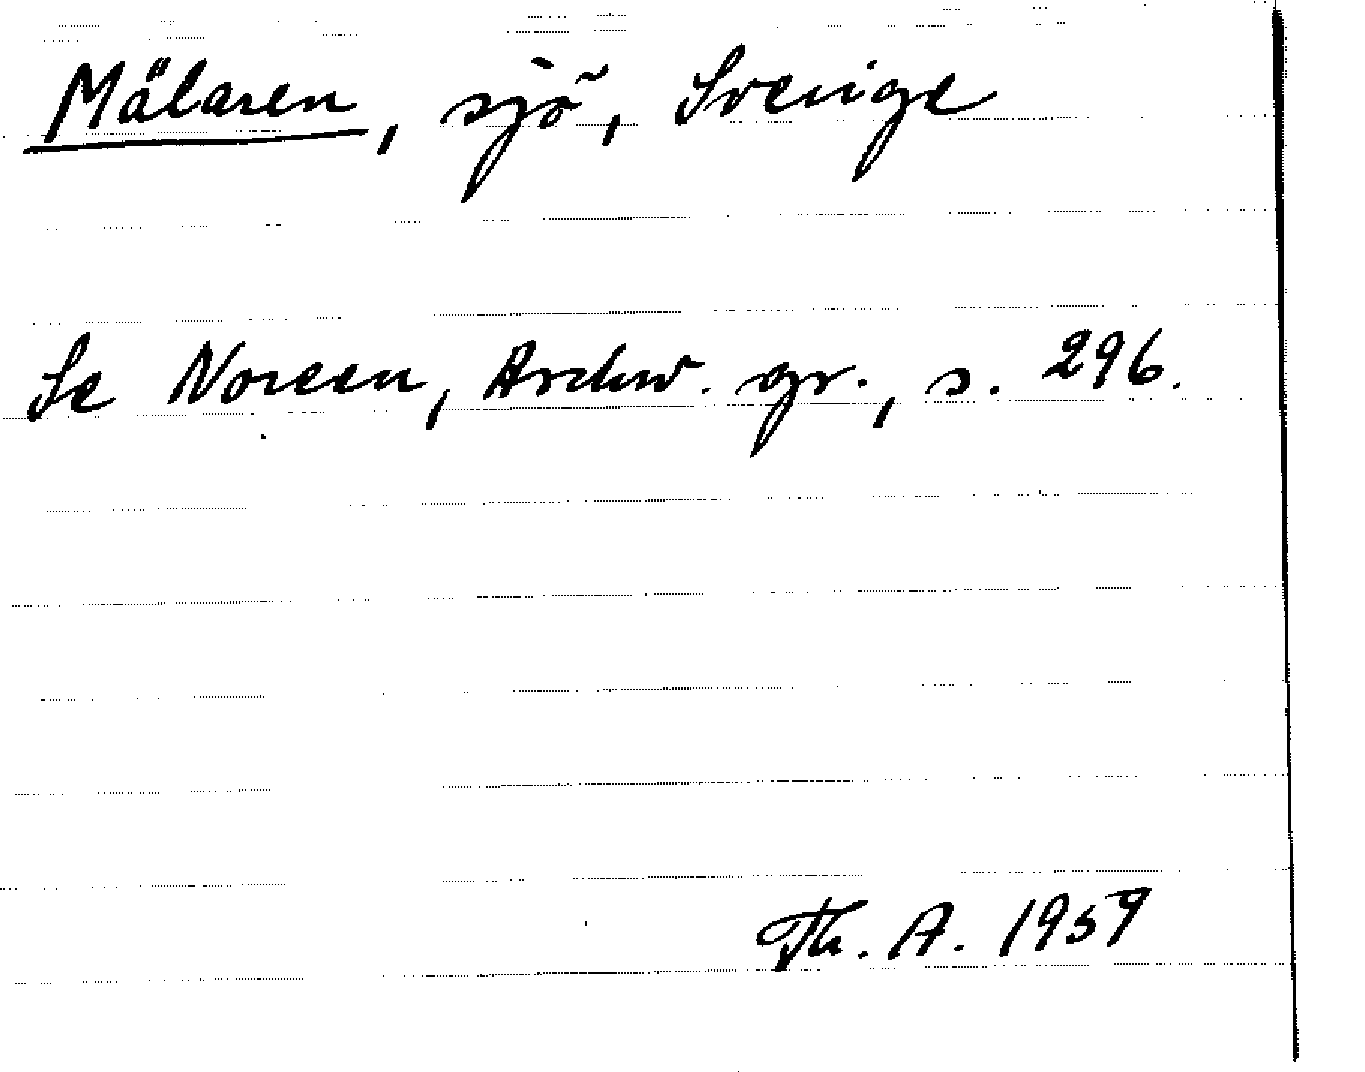 Mälaren, sjö, Sverige
Se Noreen, Aschw. gr., s. 296.
Th. A. 1959